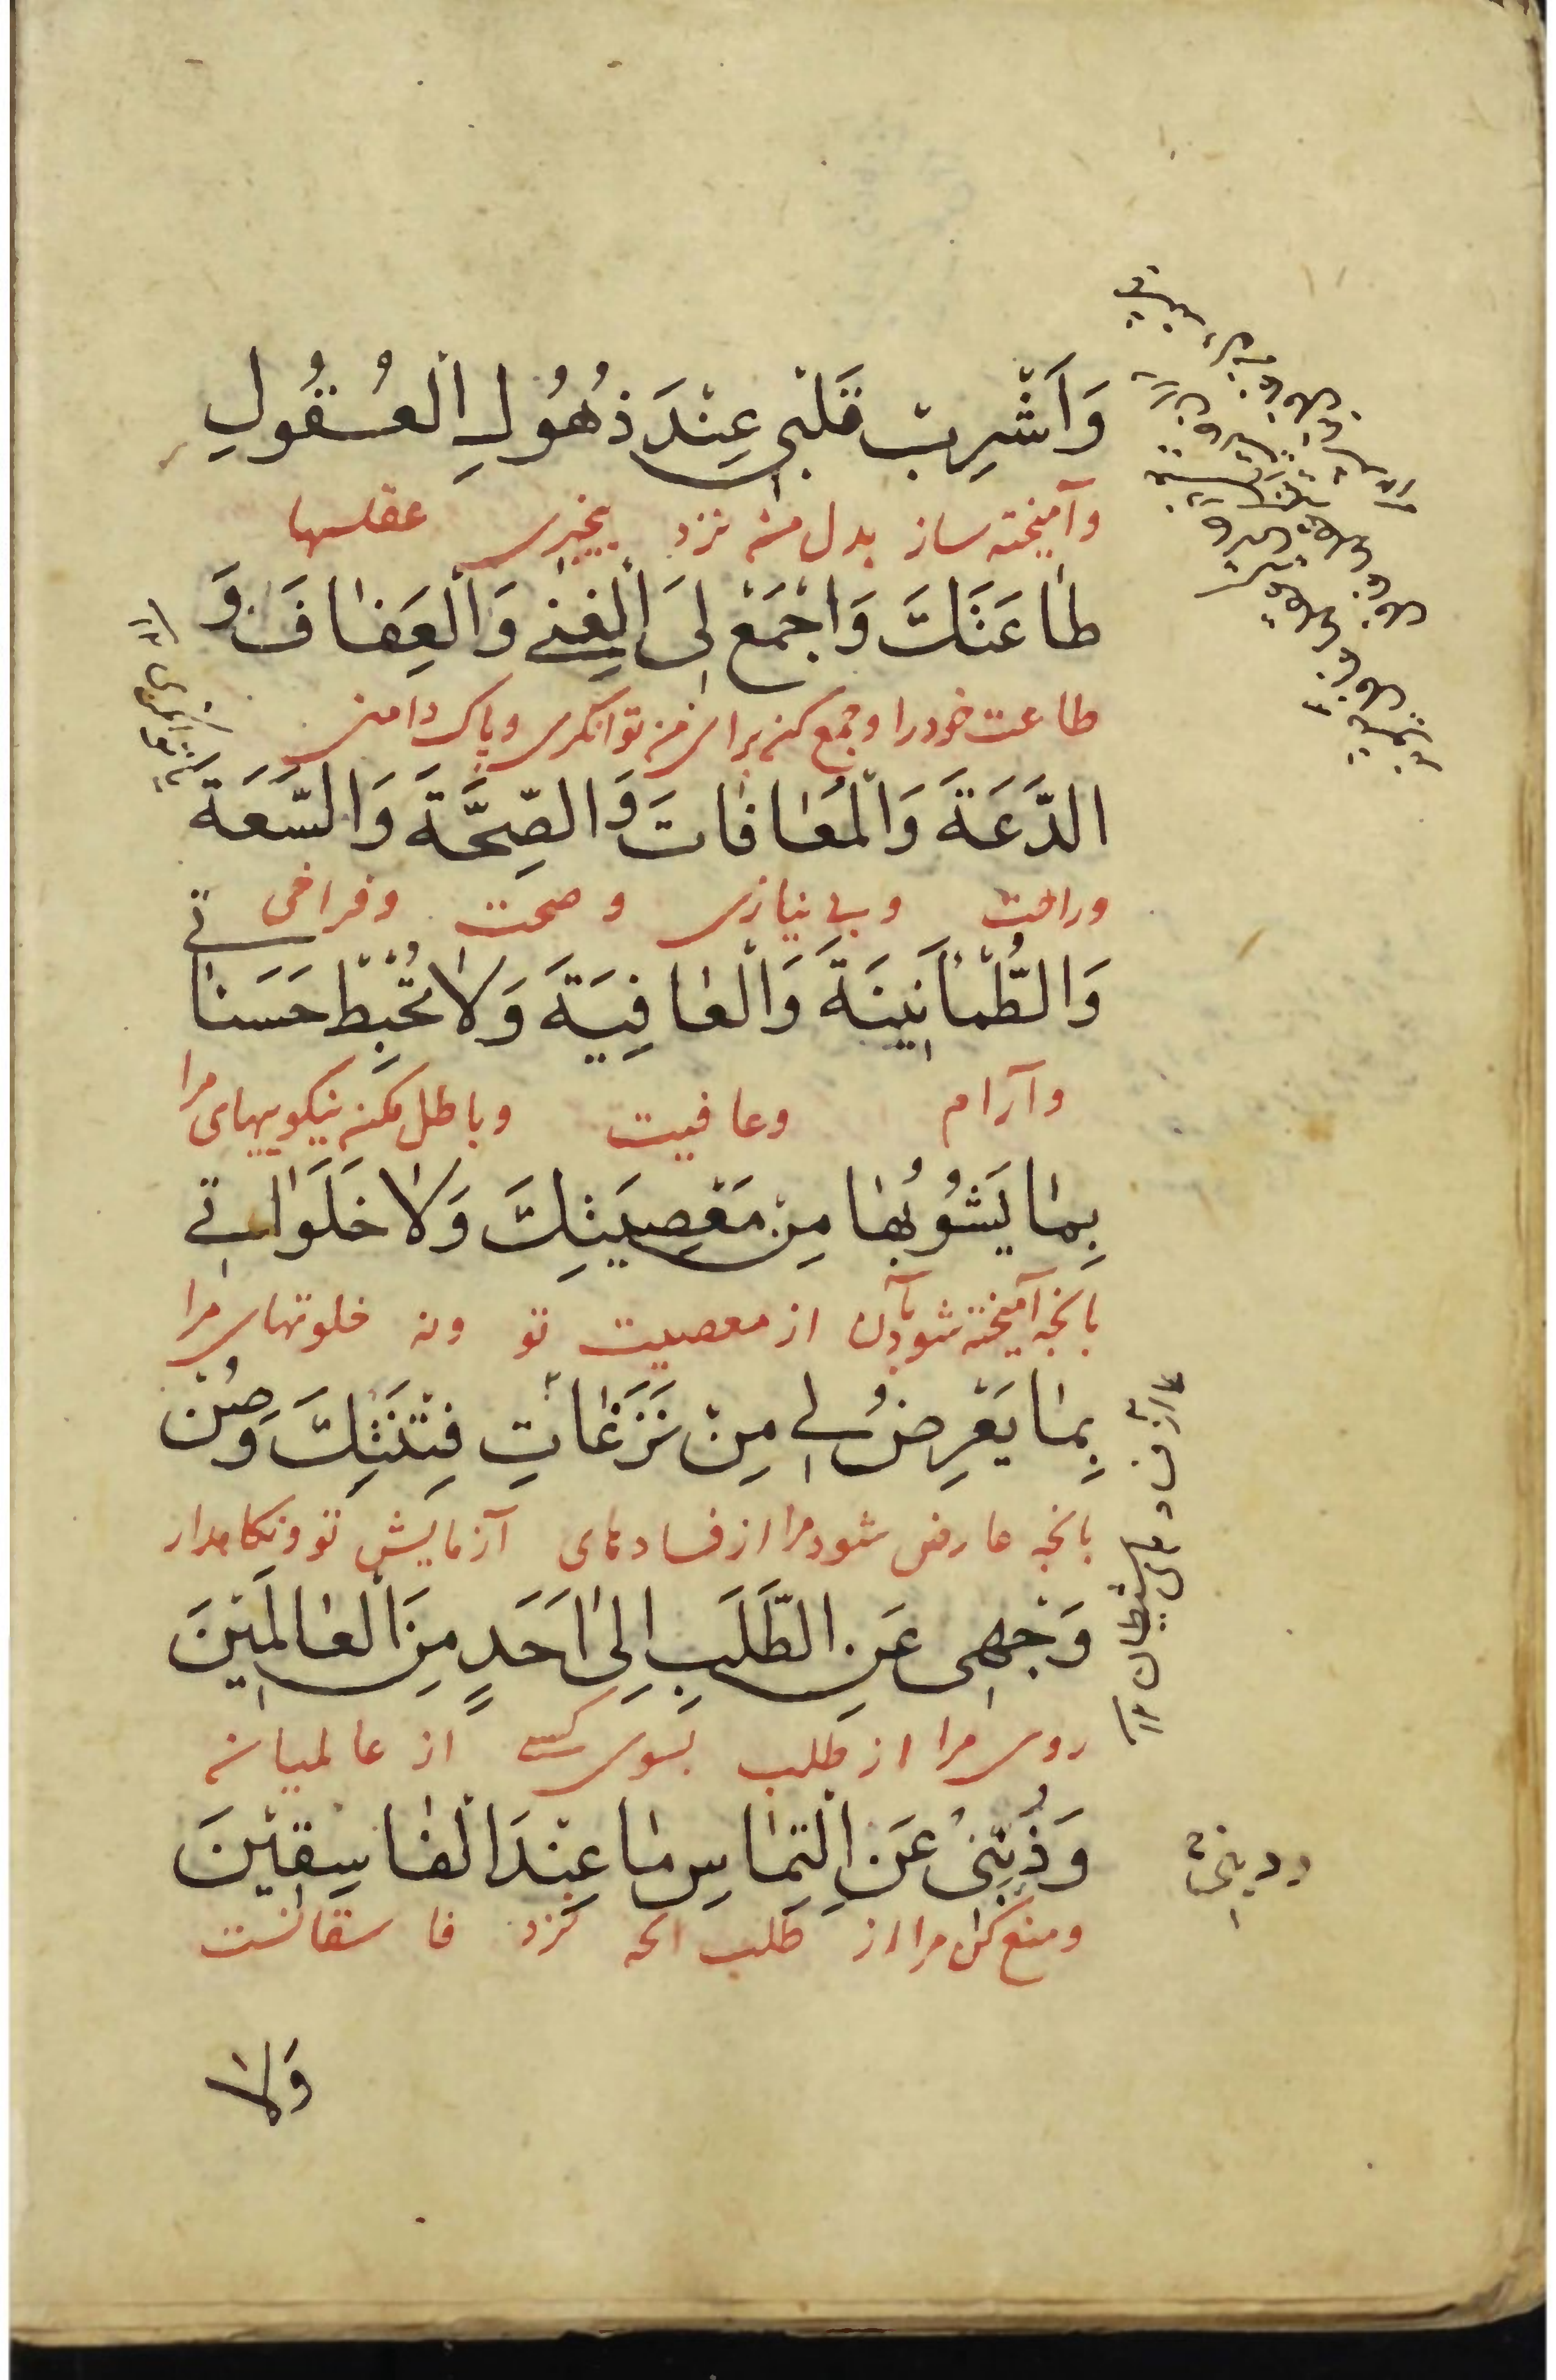 وَاَشْرِبْ قَلْبِی عِنْدَ ذُهُولِ الْعُقُولِ
وآمیخته ساز بدل من نزد بیخبری عقلها
طاعَتَكَ وَاجْمَعْ لِیَ الْغِنٰی وَالْعَفافَ وَ
طاعت خود را وجمع کن برای من توانکری وپاک دامنی
الدَّعَةَ وَالْمُعافاتَ وَالصِّحَّةَ وَالسَّعَةَ
وراحت وبی نیازی وصحت وفراخی
وَالطُّمَأنِینَةَ وَالْعافِیَةَ وَلا تُحْبِطْ حَسَناتی
وآرام وعافیت وباطل مکن نیکوییهای مرا
بِما یَشُوبُها مِنْ مَعْصِیَتِكَ وَلا خَلَواتی
بانچه آمیخته شود بآن از معصیت تو ونه خلوتهای مرا
بِما یَعْرِضُ لی مِنْ نَزَغاتِ فِتْنَتِكَ وَصُنْ
بانچه عارض شود مرا از فسادهای آزمایش تو ونکاهدار
وَجْهِی عَنِ الطَّلَبِ اِلیٰ اَحَدٍ مِنَ الْعالَمِیْنَ
روی مرا از طلب بسوی کسی از عالمیان
وَذُبَّنِیْ عَنِ الْتِماسِ ما عِنْدَ الْفاسِقِیْنَ
ومنع کن مرا از طلب انچه نزد فاسقانست
وَلا
از فسادهای شیطان ١٢